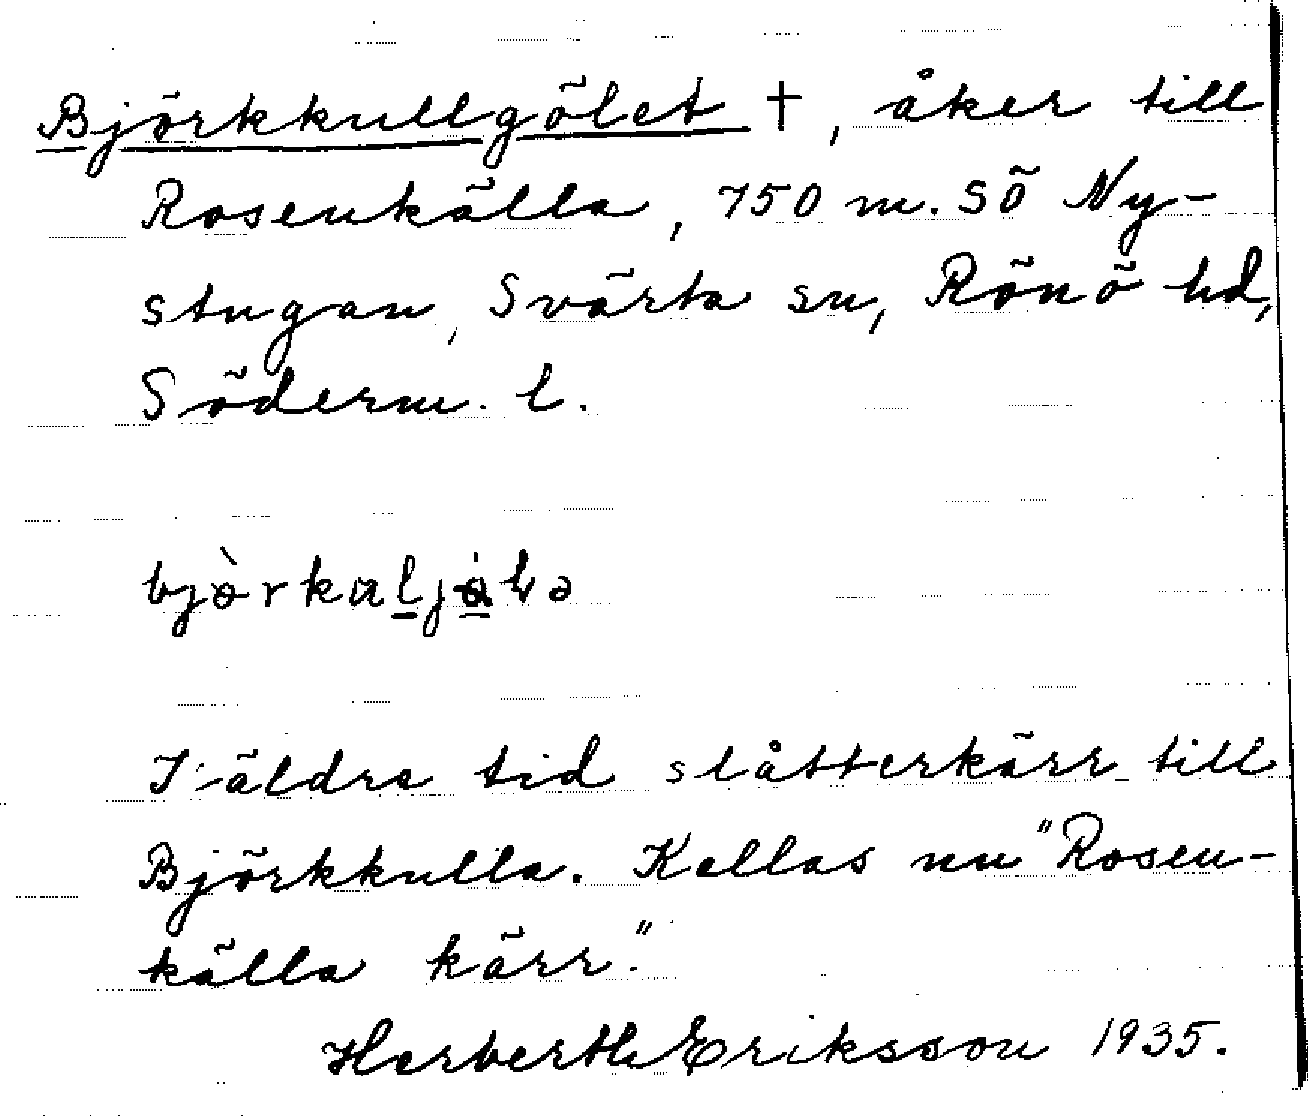 Björkkullgölet †, åker till
Rosenkälla, 750 m. SÖ Ny-
stugan, Svärta sn, Rönö hd,
Söderm. l.
I äldre tid slåtterkärr till
Björkkulla. Kallas nu "Rosen-
källa kärr."
Herberth Eriksson 1935.